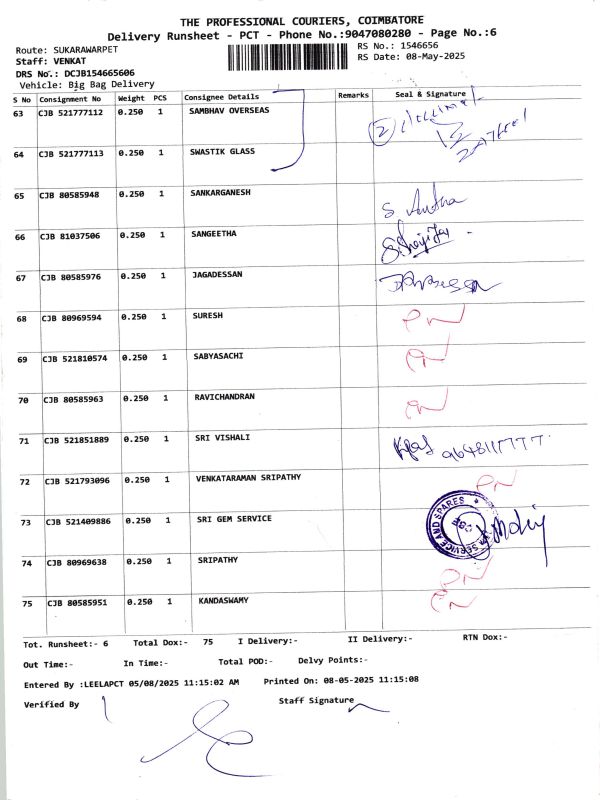 THE PROFESSIONAL COURIERS, COIMBATORE
Delivery Runsheet - PCT - Phone No.:9047080280 - Page No.:6
Route: SUKARAWARPET
RS No.: 1546656
Staff: VENKAT
RS Date: 08-May-2025
DRS No.: DCJB154665606
Vehicle: Big Bag Delivery
S No Consignment No Weight PCS Consignee Details Remarks Seal & Signature
63 CJB 521777112 0.250 1 SAMBHAV OVERSEAS
64 CJB 521777113 0.250 1 SWASTIK GLASS
65 CJB 80585948 0.250 1 SANKARGANESH
66 CJB 81037506 0.250 1 SANGEETHA
67 CJB 80585976 0.250 1 JAGADESSAN
68 CJB 80969594 0.250 1 SURESH PN
69 CJB 521810574 0.250 1 SABYASACHI PN
70 CJB 80585963 0.250 1 RAVICHANDRAN PN
71 CJB 521851889 0.250 1 SRI VISHALI
72 CJB 521793096 0.250 1 VENKATARAMAN SRIPATHY PN
73 CJB 521409886 0.250 1 SRI GEM SERVICE SERVICE AND SPARES CBE
74 CJB 80969638 0.250 1 SRIPATHY PN
75 CJB 80585951 0.250 1 KANDASWAMY PN
Tot. Runsheet:- 6 Total Dox:- 75 I Delivery:- II Delivery:- RTN Dox:-
Out Time:- In Time:- Total POD:- Delvy Points:-
Entered By :LEELAPCT 05/08/2025 11:15:02 AM Printed On: 08-05-2025 11:15:08
Verified By Staff Signature